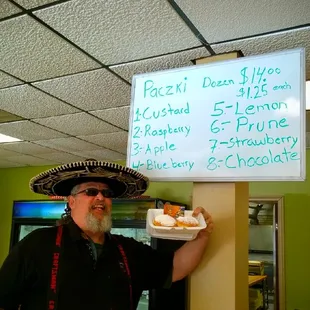 Paczki Dozen $14.00
$1.25 each
1-Custard 5-Lemon
2-Raspberry 6-Prune
3-Apple 7-Strawberry
4-Blueberry 8-Chocolate